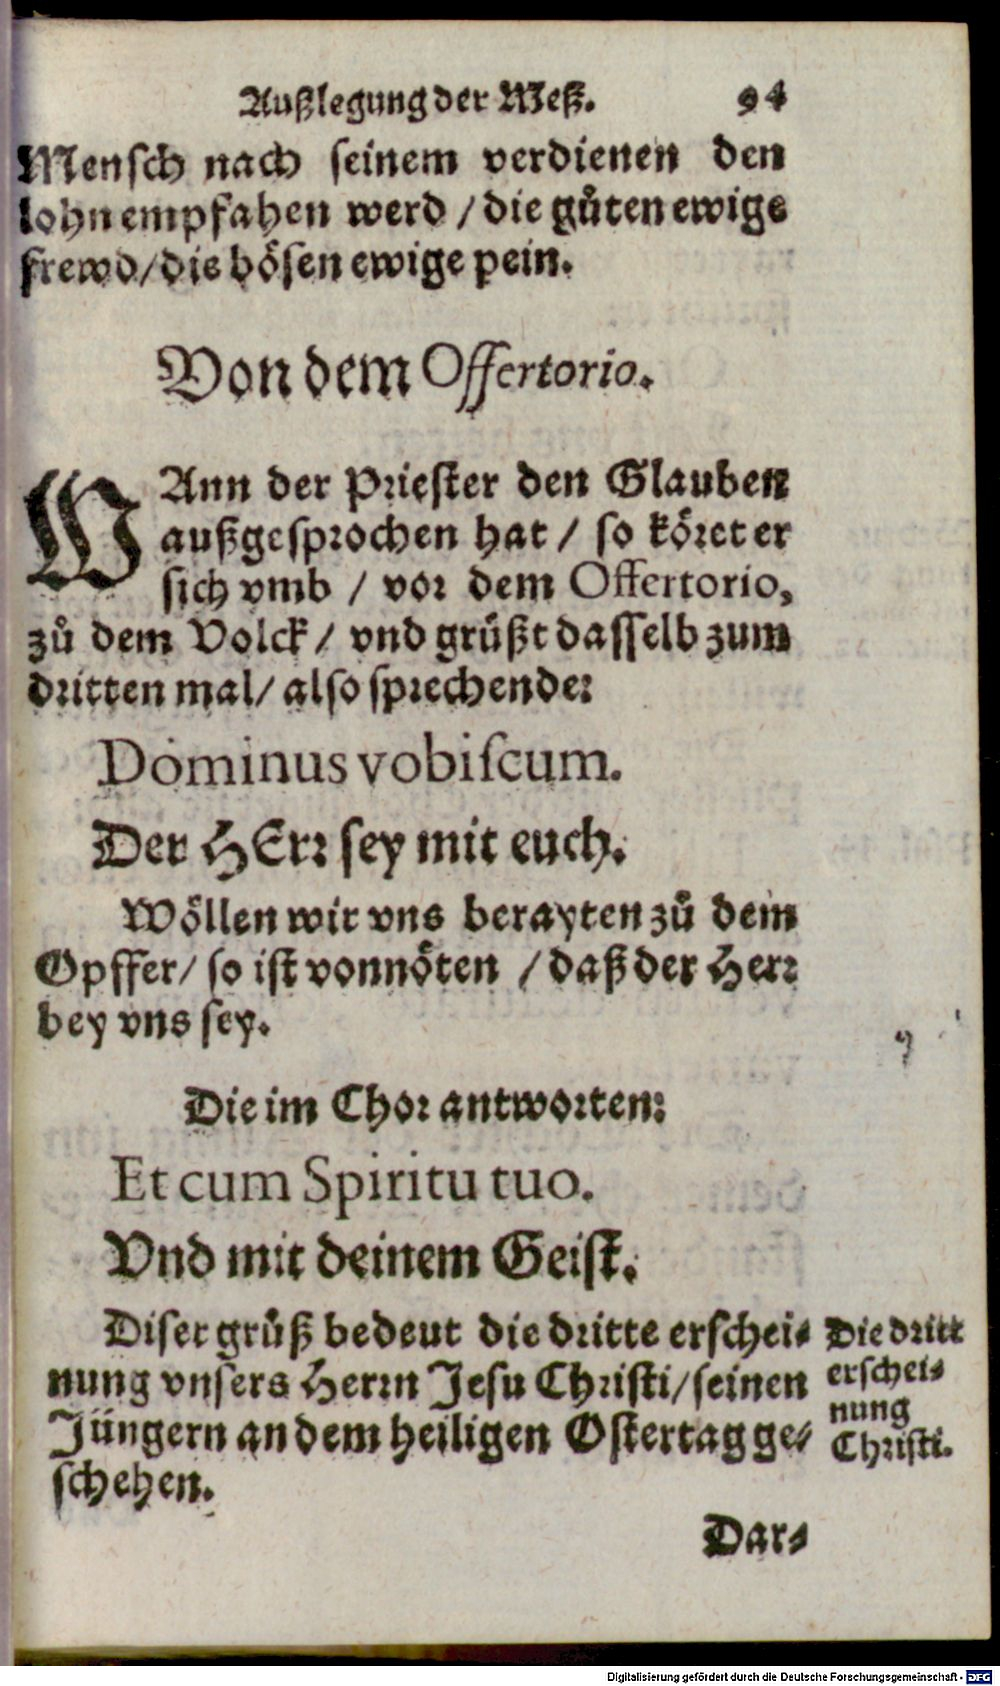 Außlegung der Meß. 94
Mensch nach seinem verdienen den
lohn empfahen werd / die gůten ewige
frewd / die bösen ewige pein.
Von dem Offertorio.
WAnn der Priester den Glauben
außgesprochen hat / so köret er
sich vmb / vor dem Offertorio,
zů dem Volck / vnd grüßt dasselb zum
dritten mal / also sprechende:
Dominus vobiſcum.
Der HErr sey mit euch.
Wöllen wir vns berayten zů dem
Opffer / so ist vonnöten / daß der Herr
bey vns sey.
Die im Chor antworten:
Et cum Spiritu tuo.
Vnd mit deinem Geist.
Diser grůß bedeut die dritte erschei⸗
nung vnsers Herrn Jesu Christi / seinen
Jüngern an dem heiligen Ostertag ge⸗
schehen.
Die dritt
erschei⸗
nung
Christi.
Dar⸗
Digitalisierung gefördert durch die Deutsche Forschungsgemeinschaft - DFG